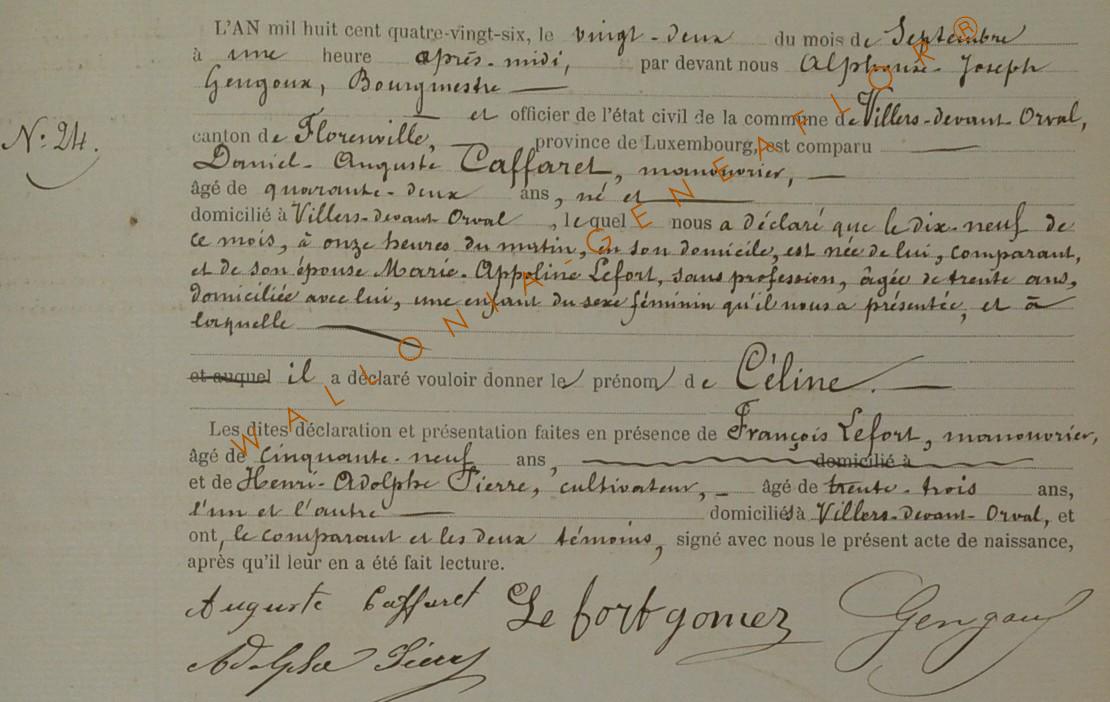 L'AN mil huit cent quatre-vingt-six, le vingt-deux du mois de Septembre
à une heure après-midi, par devant nous Alphonse-Joseph
Gengoux, Bourgmestre
et officier de l'état civil de la commune de Villers-devant Orval,
N: 24.
canton de Florenville, province de Luxembourg, est comparu
Daniel-Auguste Caffaret, manouvrier,
âgé de quarante-deux ans, né et
domicilié à Villers-devant Orval, lequel nous a déclaré que le dix-neuf de
ce mois, à onze heures du matin, en son domicile, est née de lui, comparant,
et de son épouse Marie-Appoline Lefort, sans profession, âgée de trente ans,
domiciliée avec lui, une enfant du sexe féminin qu'il nous a présentée, et à
laquelle
et auquel il a déclaré vouloir donner le prénom de Céline.
Les dites déclaration et présentation faites en présence de François Lefort, manouvrier,
âgé de cinquante-neuf ans, domicilié à
et de Henri-Adolphe Pierre, cultivateur, âgé de trente-trois ans,
l'un et l'autre domiciliés à Villers-devant-Orval, et
ont, le comparant et les deux témoins, signé avec nous le présent acte de naissance,
après qu'il leur en a été fait lecture.
Auguste Caffaret Lefort gomez Gengoux
Adolphe Pierre
WALLONIA-GENEAFLOR®